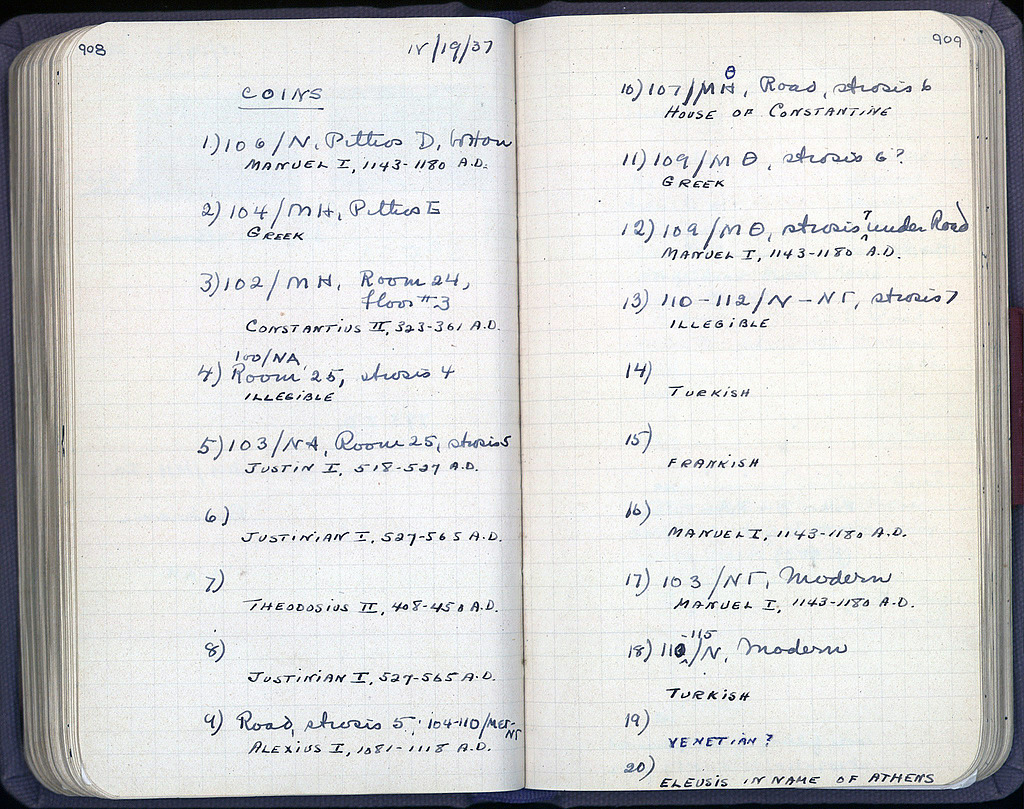 908
IV/19/37
COINS
1) 106/N, Pithos D, bottom
MANUEL I, 1143-1180 A.D.
2) 104/MH, Pithos E
GREEK
3) 102/MH, Room 24,
floor #3
CONSTANTIUS II, 323-361 A.D.
100/NA,
4) Room 25, strosis 4
ILLEGIBLE
5) 103/NA, Room 25, strosis 5
JUSTIN I, 518-527 A.D.
6)
JUSTINIAN I, 527-565 A.D.
7)
THEODOSIUS II, 408-450 A.D.
8)
JUSTINIAN I, 527-565 A.D.
9) Road, strosis 5; 104-110/
ALEXIUS I, 1081-1118 A.D.
909
Θ
10) 107/MH, Road, strosis 6
HOUSE OF CONSTANTINE
11) 109/MΘ, strosis 6?
GREEK
12) 109/MΘ, strosis ? under Road
MANUEL I, 1143-1180 A.D.
13) 110-112/N-NΓ, strosis 7
ILLEGIBLE
14)
TURKISH
15)
FRANKISH
16)
MANUEL I, 1143-1180 A.D.
17) 103/NΓ, Modern
MANUEL I, 1143-1180 A.D.
18) 110-115/N, Modern
TURKISH
19)
VENETIAN?
20)
ELEUSIS IN NAME OF ATHENS